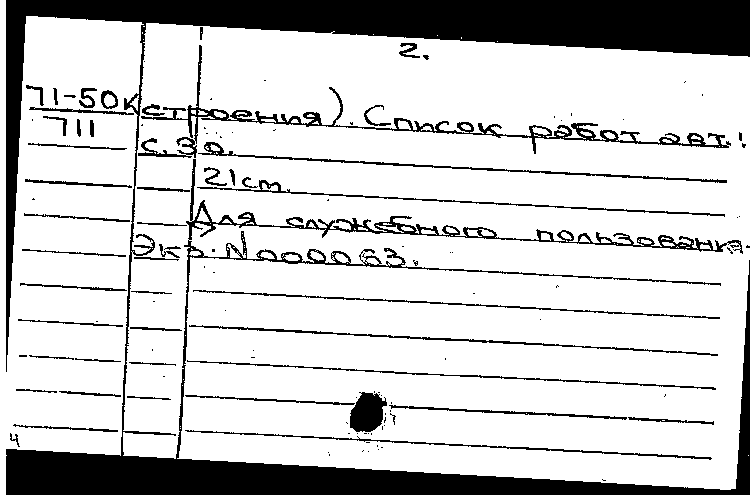 2.
71-50к строения). Список работ авт.:
711
с. 30.
21 cm.
Для служебного пользования.
Экз. N 000063.
4